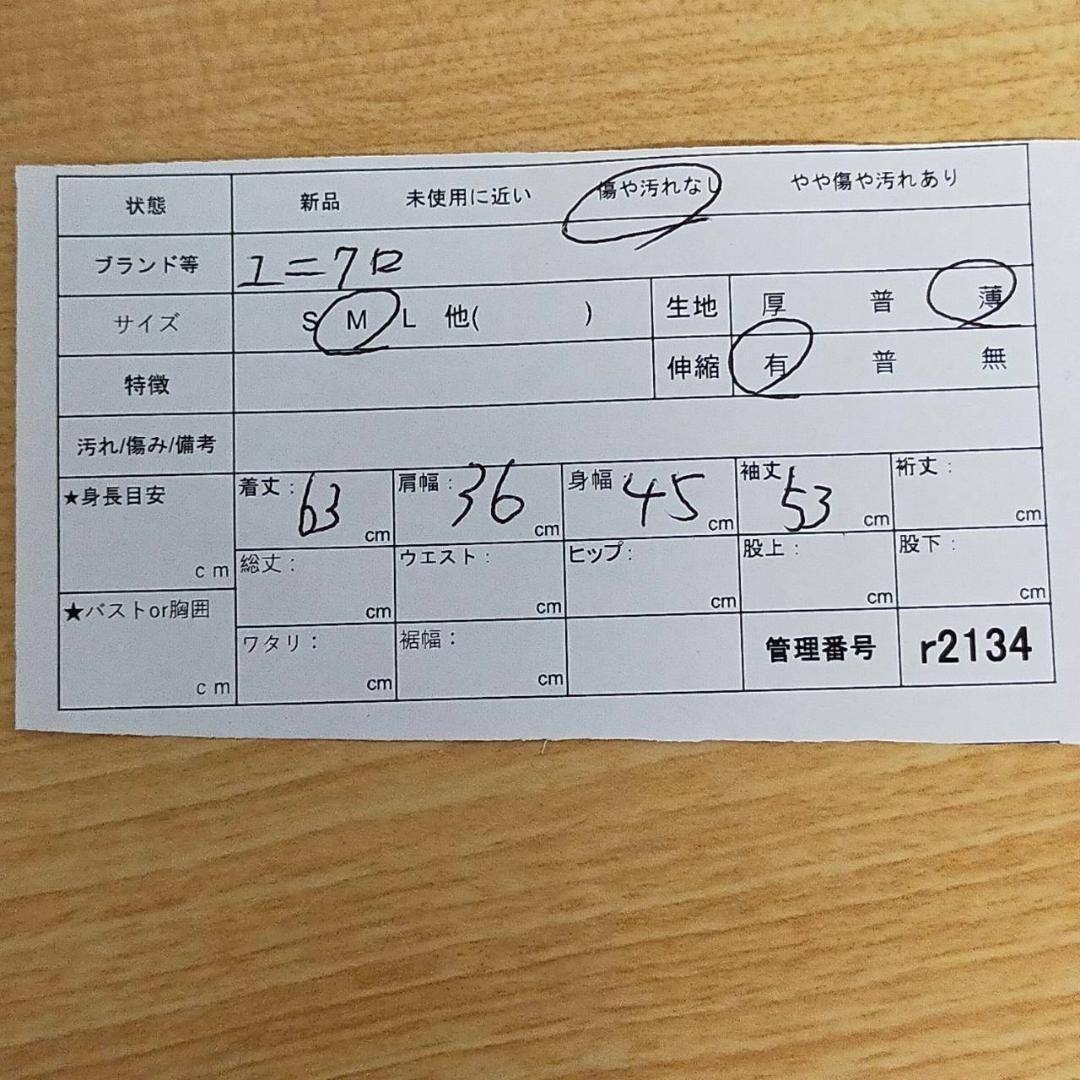 状態 新品 未使用に近い 傷や汚れなし やや傷や汚れあり
ブランド等 ユニクロ
サイズ S M L 他( ) 生地 厚 普 薄
特徴 伸縮 有 普 無
汚れ/傷み/備考
★身長目安 cm
着丈: 63 cm 肩幅: 36 cm 身幅: 45 cm 袖丈 53 cm 裄丈: cm
総丈: cm ウエスト: cm ヒップ: cm 股上: cm 股下: cm
★バストor胸囲 cm
ワタリ: cm 裾幅: cm 管理番号 r2134